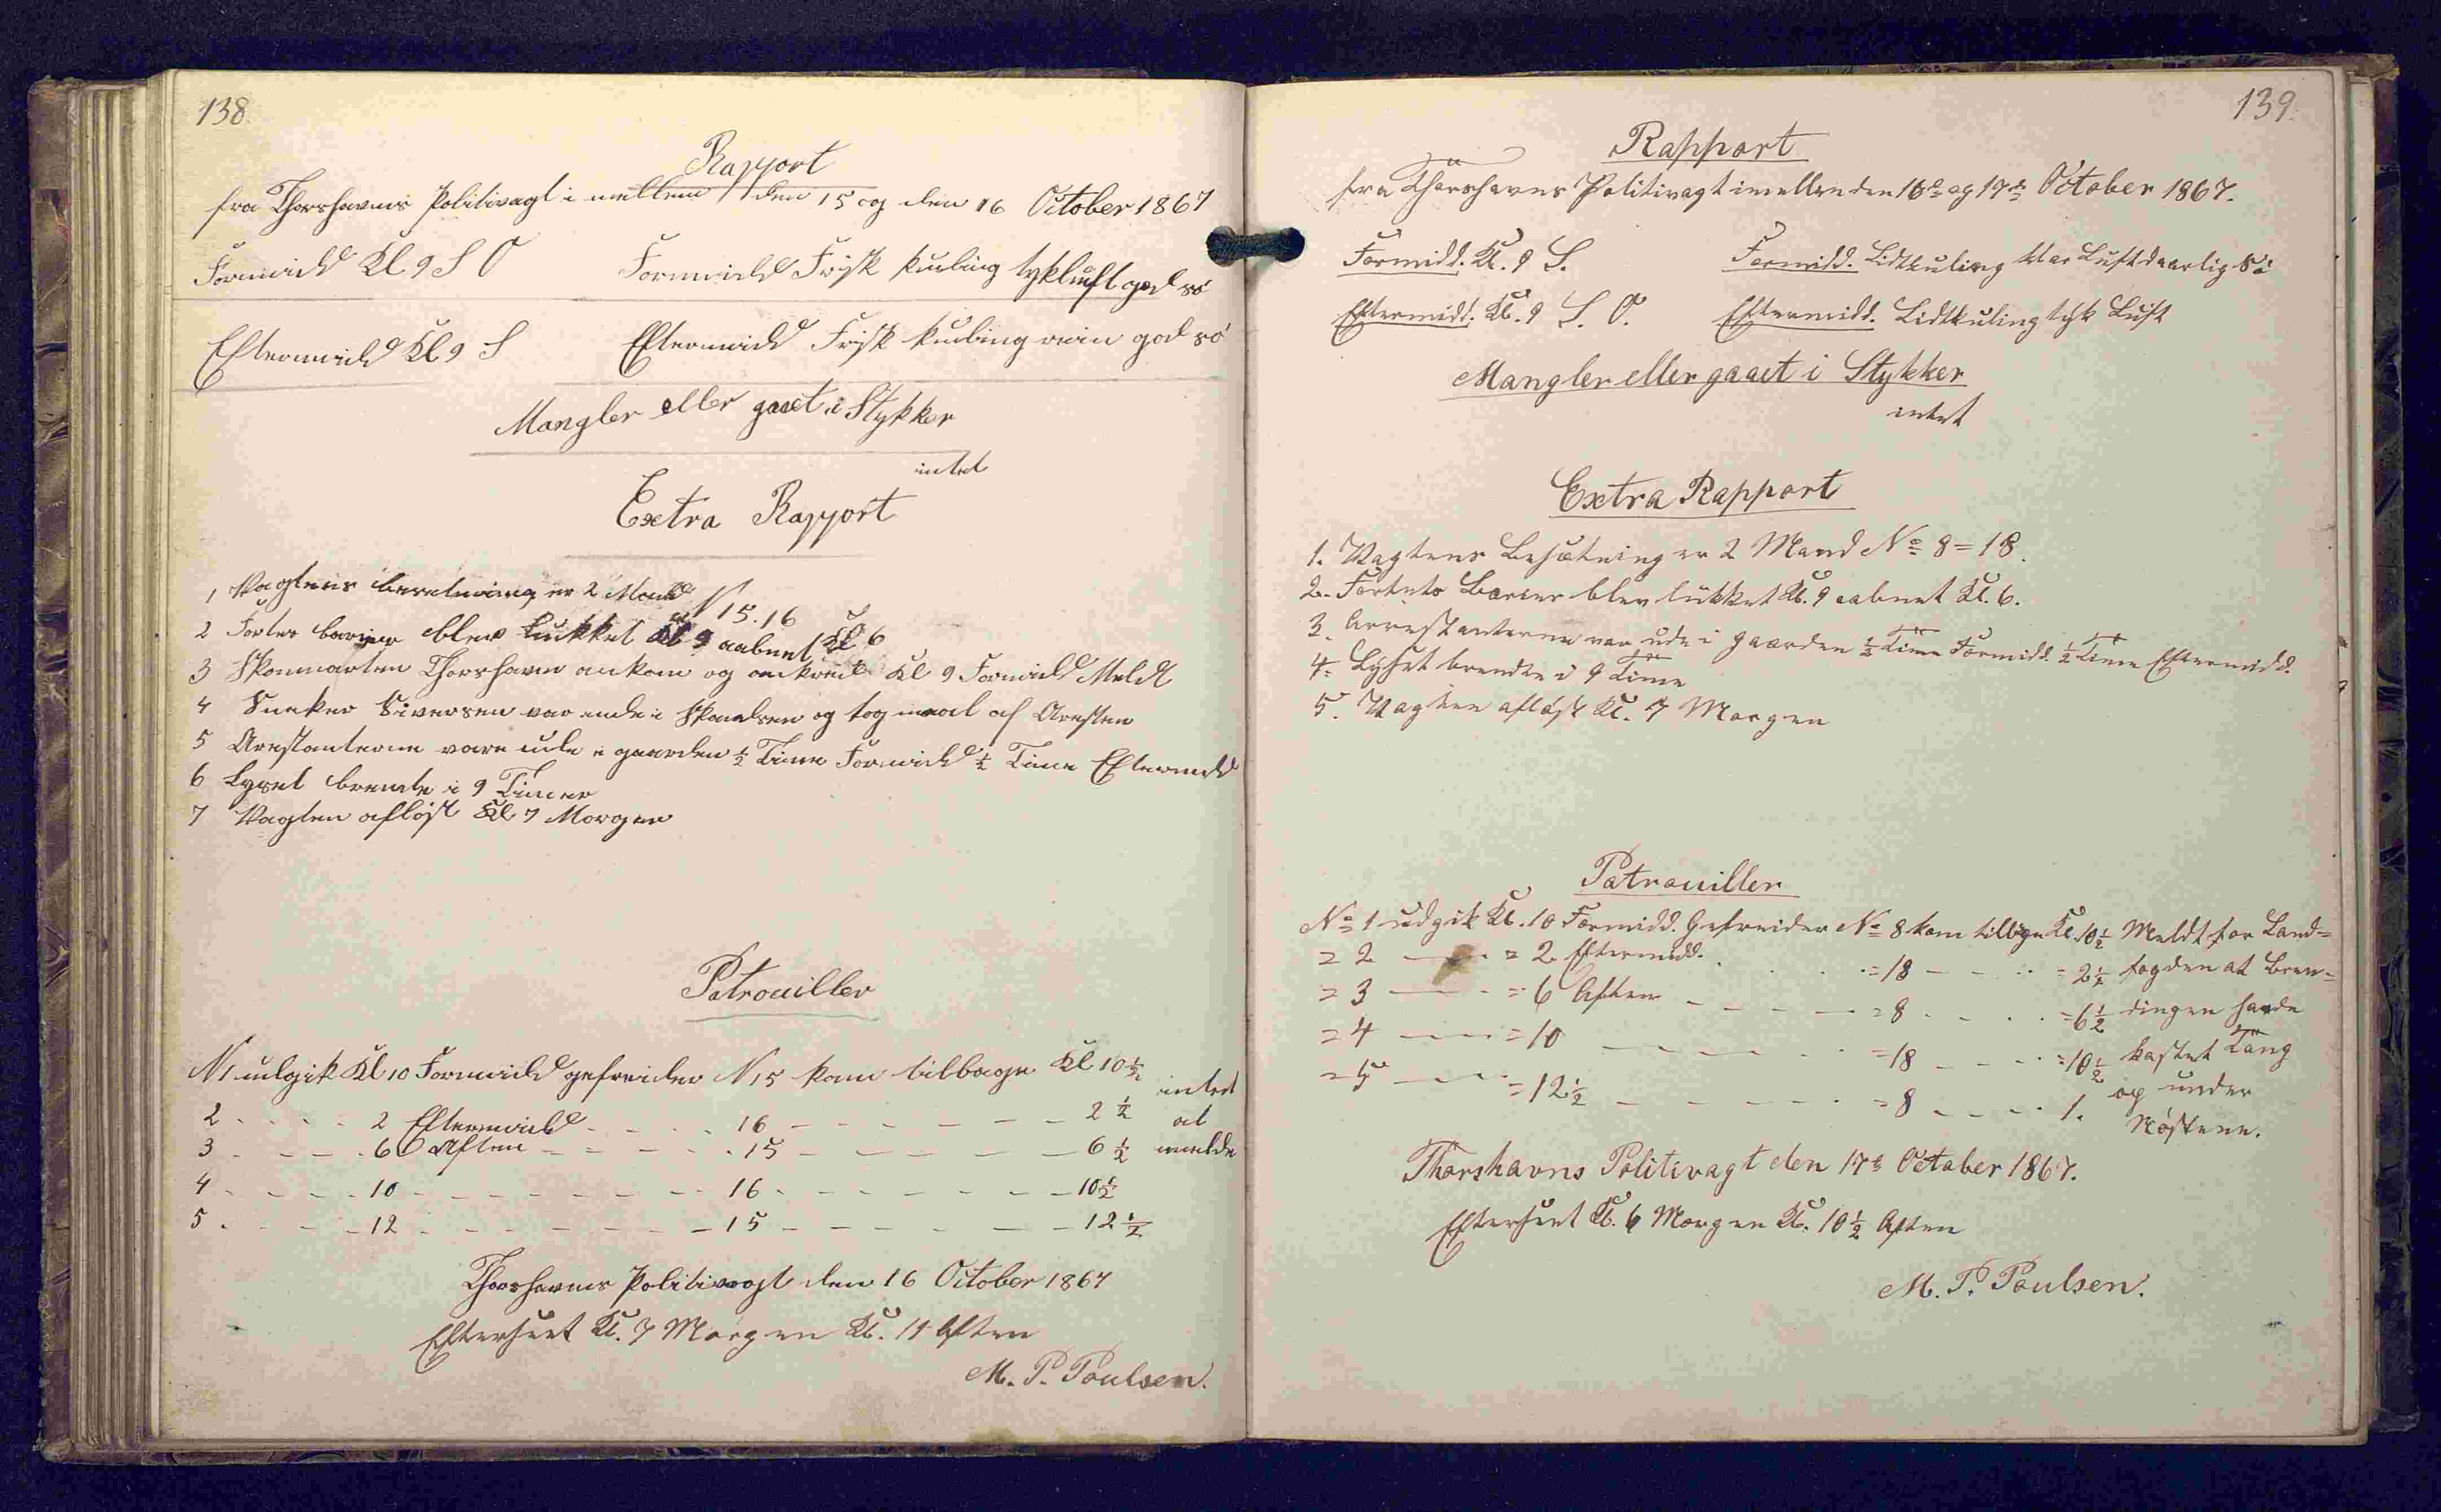 138.
Rapport
fra Thorshavns Politivagt i mellem den 15 og den 16 October 1867
Formidd Kl 9 S O Formidd Frisk kuling tykluft god sö
Eftermidd Kl 9 S Eftermidd Frisk kuling rein god sö
Mangler eller gaaet i Stykker
intet
Extra Rapport
1 Vagtens besetning er 2 Mand N 15.16
2 Fortes barier blev lukket Kl 9 aabnet Kl 6
3 Skonnarten Thorshavn ankom og ankred Kl 9 Formidd Meldt
4 Sneker Siversen var inde i Skandsen og tog maal af Aresten
5 Arestanterne vare ude i gaarden ½ Time Formidd ½ Time Eftermidd
6 Lyset brente i 9 Timer
7 Vagten aflöst Kl 7 Morgen
Patrouiller
N1 udgik Kl 10 Formidd gefreider N15 kom tilbage Kl 10½ intet
2 - - - - 2 Eftermidd - - - - 16 - - - - - - 2½ at
3 - - - - 6 Aften - - - - - 15 - - - - - - 6½ melde
4 - - - - 10 - - - - - - - - 16 - - - - - - 10½
5 - - - - 12 - - - - - - - - 15 - - - - - - 12½
Thorshavns Politivagt den 16 October 1867
Efterseet Kl. 7 Morgen Kl. 11 Aften
M. P. Poulsen.
139.
Rapport
fra Thorshavns Politivagt imellen den 16de og 17de October 1867.
Formidd. Kl. 9 S. Formidd. Lidtkuling klar Luft daarlig Sö
Eftermidd. Kl. 9 S. O. Eftermidd. Lidtkuling tyk Luft
Mangler eller gaaet i Stykker
intet
Extra Rapport
1. Vagtens Besætning er 2 Mand No 8 = 18.
2. Fortets Barier blev lükket Kl. 9 aabnet Kl. 6.
3. Arrestanterne var ude i gaarden ½ Time Formidd. ½ Time Eftermidd.
4. Lyset brendte i 9 Time
5. Vagten afløst Kl. 7 Morgen
Patrouiller
No 1 udgik Kl. 10 Formidd. Gefreider No 8 kom tilbage Kl. 10½ Meldt for Land=
= 2 - - = 2 Eftermidd. - - - = 18 - - - = 2½ fogden at Bren=
= 3 - - = 6 Aften - - - - = 8 - - - = 6½ dingen havde
= 4 - - = 10 - - - - = 18 - - - = 10½ kastet Tang
= 5 - - = 12½ - - - - = 8 - - - 1. op under
Nøstene.
Thorshavns Politivagt den 17de October 1867.
Efterseet Kl. 6 Morgen Kl. 10½ Aften
M. P. Poulsen.